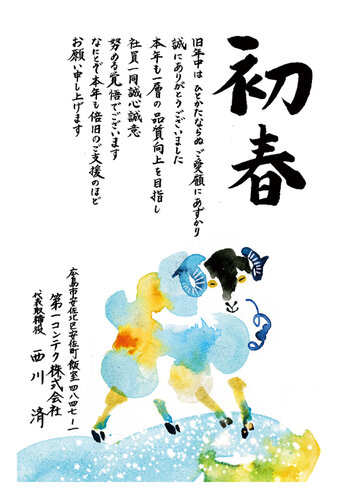 初春
旧年中は ひとかたならぬ ご愛顧にあずかり
誠にありがとうございました
本年も一層の品質向上を目指し
社員一同誠心誠意
努める覚悟でございます
なにとぞ本年も倍旧のご支援のほど
お願い申し上げます
広島市安佐北区安佐町飯室四八四七-一
第一コンテク株式会社
代表取締役 西川 済